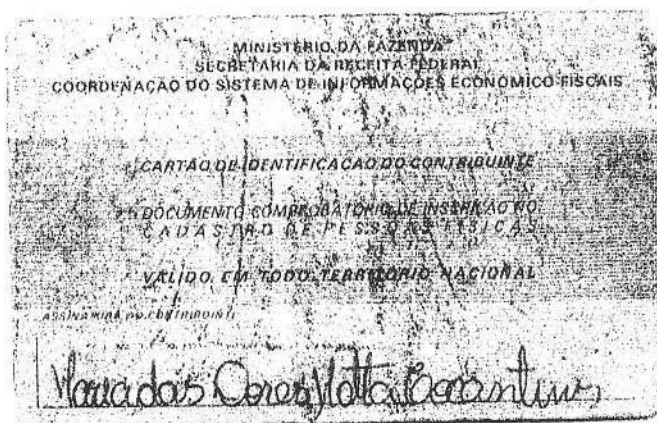 MINISTÉRIO DA FAZENDA
SECRETARIA DA RECEITA FEDERAL
COORDENAÇÃO DO SISTEMA DE INFORMAÇÕES ECONÔMICO-FISCAIS
CARTÃO DE IDENTIFICAÇÃO DO CONTRIBUINTE
DOCUMENTO COMPROBATÓRIO DE INSCRIÇÃO NO
CADASTRO DE PESSOAS FÍSICAS
VÁLIDO EM TODO TERRITÓRIO NACIONAL
ASSINATURA DO CONTRIBUINTE
Maria das Dores Motta